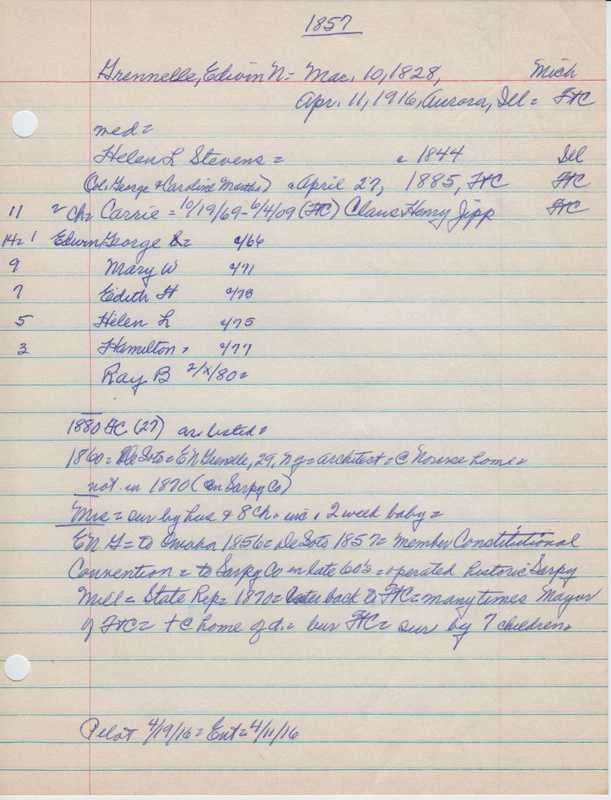 1857
Grennelle, Edwin N = Mar. 10, 1828, Mich
Apr. 11, 1916, Aurora, Ill = FtC
med =
Helen L Stevens = c 1844 Ill
(Col. George & Caroline) April 27, 1885, FtC FtC
11 2 ch = Carrie = 10/19/69 - 6/4/09 (FtC) Claus Henry Jipp FtC
14 = 1 Edwin George c/66
9 Mary W c/71
7 Edith H c/73
5 Helen L c/75
3 Hamilton = c/77
Ray B 2/x/80 =
1880 FC (27) are listed =
1860 = DeSoto = E N Grenelle, 29, Ny = architect = @ Nourse home =
not in 1870 (in Sarpy Co)
Mrs = sur by hus & 8 ch. inc. 2 week baby =
E N G = to Omaha 1856 = DeSoto 1857 = member Constitutional
Convention = to Sarpy Co in late 60's = operated historic Sarpy
Mill = State Rep = 1870 = later back to FtC = many times Mayor
of FtC = + @ home of d. = bur FtC = sur by 7 children.
Pilot 4/19/16 = Ent = 4/11/16